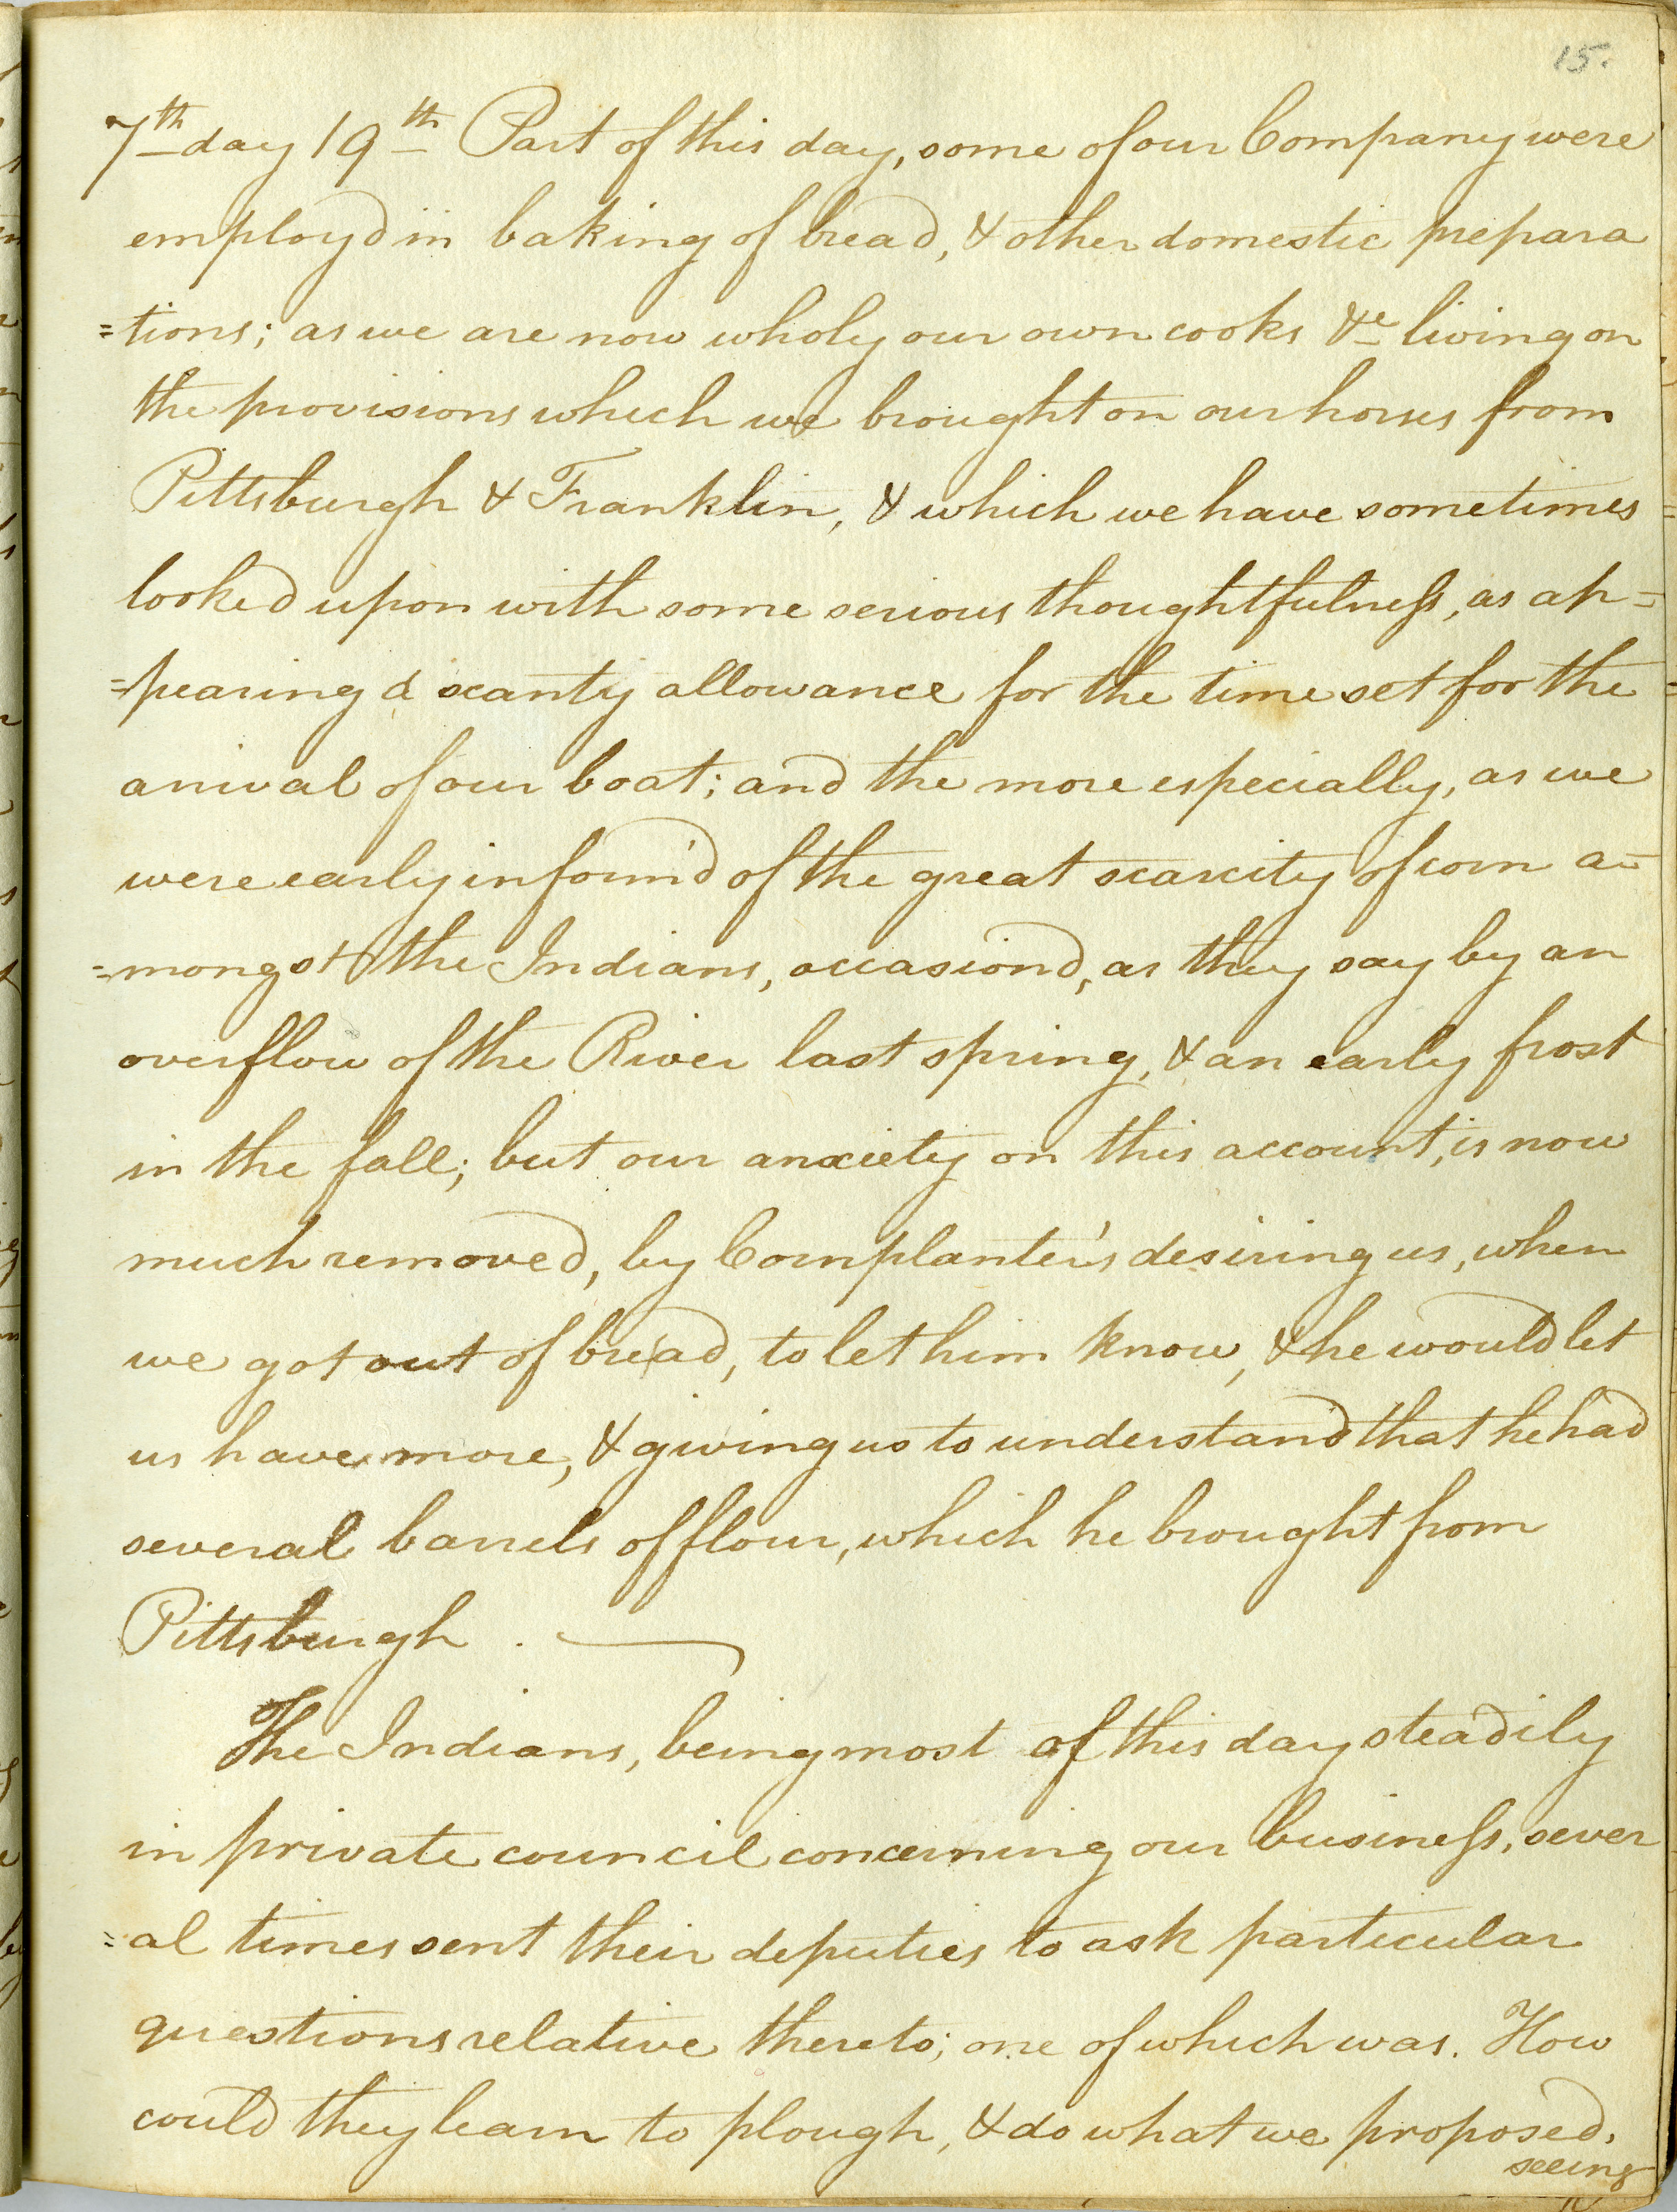 15.
7th day 19th Part of this day, some of our Company were
employ'd in baking of bread, & other domestic prepara
=tions; as we are now wholy our own cooks &c living on
the provisions which we brought on our horses from
Pittsburgh & Franklin, & which we have sometimes
looked upon with some serious thoughtfulness, as ap=
=pearing a scanty allowance for the time set for the
arrival of our boat; and the more especially, as we
were early inform'd of the great scarcity of corn a=
=mongst the Indians, occasion'd, as they say by an
overflow of the River last spring, & an early frost
in the fall; but our anxiety on this account, is now
much removed, by Cornplanter's desiring us, when
we got out of bread, to let him know, & he would let
us have more, & giving us to understand that he had
several barrels of flour, which he brought from
Pittsburgh.
The Indians, being most of this day steadily
in private council concerning our business, sever
=al times sent their deputies to ask particular
questions relative thereto; one of which was. How
could they learn to plough, & do what we proposed,
seeing